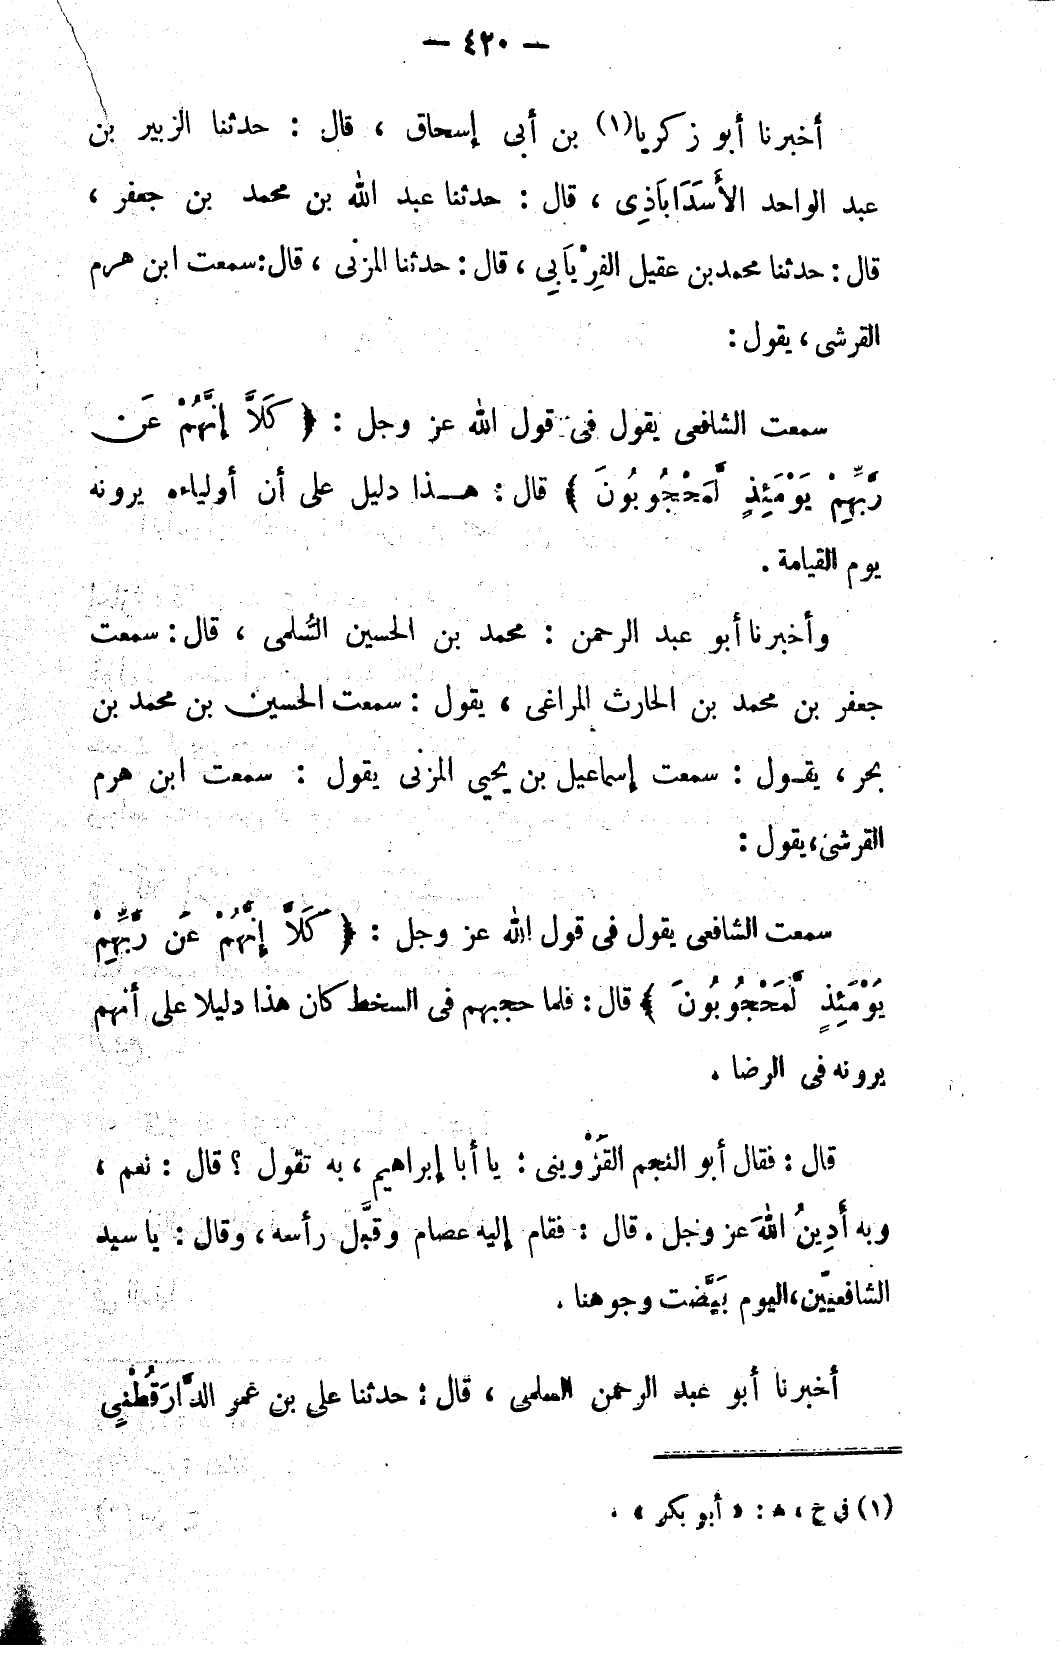 — ٤٢٠ —
أخبرنا أبو زكريا(١) بن أبى إسحاق ، قال : حدثنا الزبير بن
عبد الواحد الأَسَدَابَاذِى ، قال : حدثنا عبد الله بن محمد بن جعفر ،
قال : حدثنا محمد بن عقيل الفِرْيَابِي ، قال : حدثنا المزنى ، قال : سمعت ابن هرم
القرشى ، يقول :
سمعت الشافعى يقول فى قول الله عز وجل : ﴿ كَلاَّ إِنَّهُمْ عَن
رَّبِّهِمْ يَوْمَئِذٍ لَّمَحْجُوبُونَ ﴾ قال : هـذا دليل على أن أولياءه يرونه
يوم القيامة .
وأخبرنا أبو عبد الرحمن : محمد بن الحسين السُّلمى ، قال : سمعت
جعفر بن محمد بن الحارث المراغى ، يقول : سمعت الحسين بن محمد بن
بحر ، يقـول : سمعت إسماعيل بن يحيى المزنى يقول : سمعت ابن هرم
القرشى ، يقول :
سمعت الشافعى يقول فى قول الله عز وجل : ﴿ كَلاَّ إِنَّهُمْ عَن رَّبِّهِمْ
يَوْمَئِذٍ لَّمَحْجُوبُونَ ﴾ قال : فلما حجبهم فى السخط كان هذا دليلا على أنهم
يرونه فى الرضا .
قال : فقال أبو النجم القَزْوينى : يا أبا إبراهيم ، به تقول ؟ قال : نعم ،
وبه أَدِينُ اللهَ عز وجل . قال : فقام إليه عصام وقبَّل رأسه ، وقال : يا سيد
الشافعيّين ، اليوم بَيَّضت وجوهنا .
أخبرنا أبو عبد الرحمن السلمى ، قال : حدثنا على بن عمر الدَّارَقُطْنِي
(١) فى ح ، ھ : « أبو بكر » .